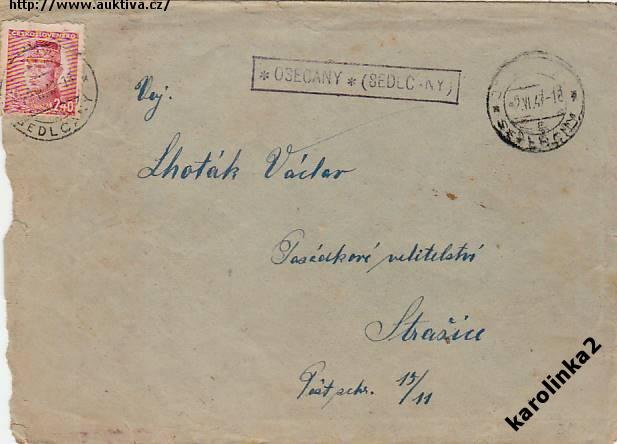 http://www.auktiva.cz/
ČESKOSLOVENSKO
2·40
SEDLČANY *
* OSEČANY * (SEDLČ-NY)
Voj.
Lhoták Václav
Posádkové velitelství
Strašice
Pošt. schr. 15/11
karolinka2